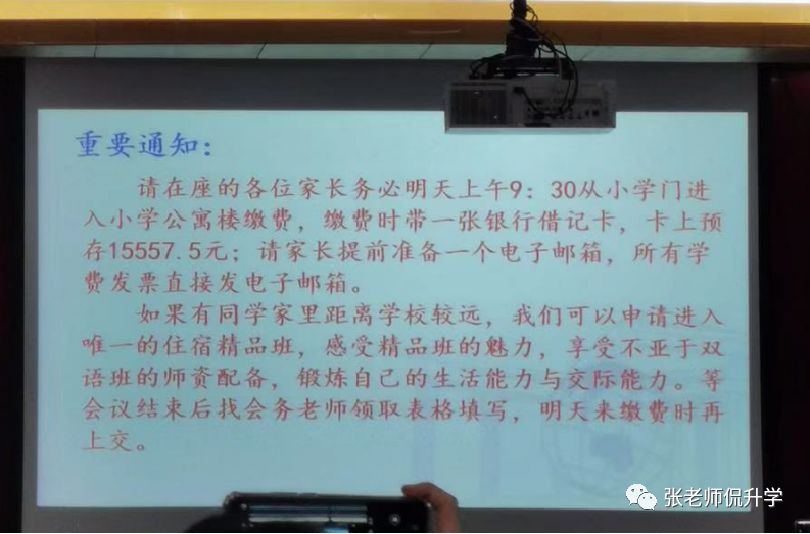 重要通知:
请在座的各位家长务必明天上午9：30从小学门进
入小学公寓楼缴费，缴费时带一张银行借记卡，卡上预
存15557.5元；请家长提前准备一个电子邮箱，所有学
费发票直接发电子邮箱。
如果有同学家里距离学校较远，我们可以申请进入
唯一的住宿精品班，感受精品班的魅力，享受不亚于双
语班的师资配备，锻炼自己的生活能力与交际能力。等
会议结束后找会务老师领取表格填写，明天来缴费时再
上交。
张老师侃升学